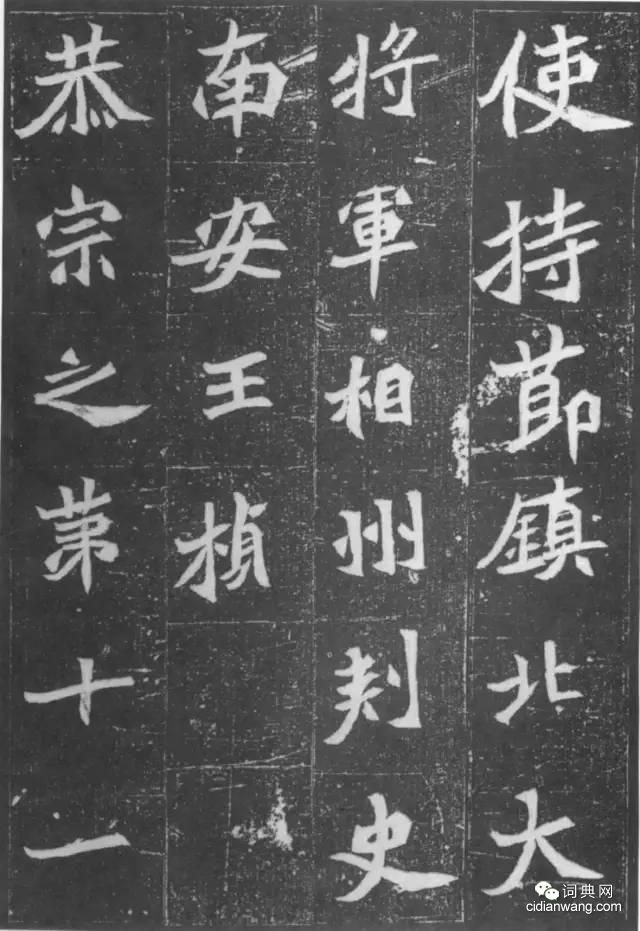 使持節鎮北大
將軍相州刾史
南安王楨
恭宗之苐十一
词典网
cidianwang.com